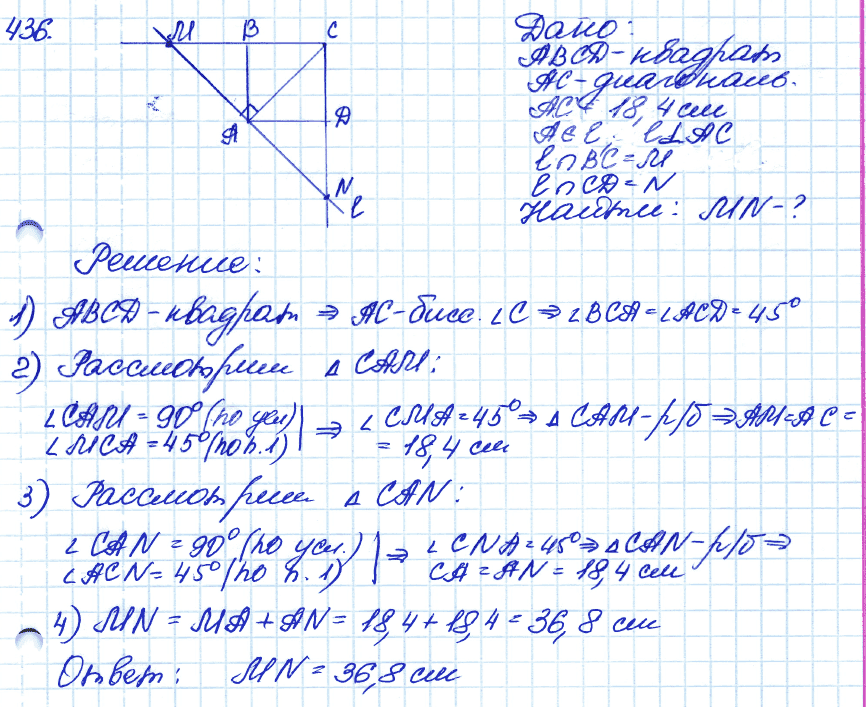 436.
M B C
A D
N
l
Дано:
ABCD - квадрат
AC - диагональ.
AC = 18,4 см
A ∈ l, l ⊥ AC
l ∩ BC = M
l ∩ CD = N
Найти: MN - ?
Решение:
1) ABCD - квадрат ⇒ AC - бисс. ∠C ⇒ ∠BCA = ∠ACD = 45°
2) Рассмотрим △ CAM:
∠CAM = 90° (по усл) | ⇒ ∠CMA = 45° ⇒ △ CAM - р/б ⇒ AM = AC =
∠MCA = 45° (по п.1) = 18,4 см
3) Рассмотрим △ CAN:
∠CAN = 90° (по усл.) | ⇒ ∠CNA = 45° ⇒ △CAN - р/б ⇒
∠ACN = 45° (по п.1) CA = AN = 18,4 см
4) MN = MA + AN = 18,4 + 18,4 = 36,8 см
Ответ: MN = 36,8 см